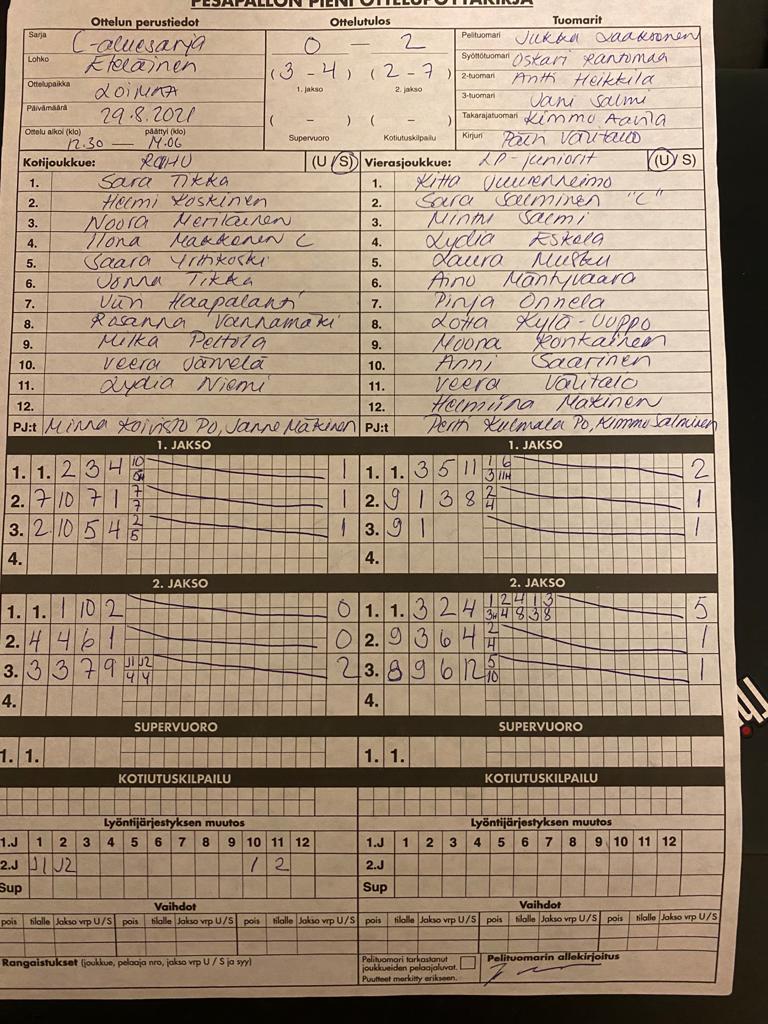 PESÄPALLON PIENI OTTELUPÖYTÄKIRJA
Ottelun perustiedot Ottelutulos Tuomarit
Sarja C-aluesarja 0 – 2 Pelituomari Jukka Jaakkonen
Lohko Eteläinen (3 – 4) (2 – 7) Syöttötuomari Oskari Rantamaa
1. jakso 2. jakso 2-tuomari Antti Heikkilä
Ottelupaikka LOIMAA 3-tuomari Jani Salmi
Päivämäärä 29.8.2021 ( – ) ( – ) Takarajatuomari Kimmo Aavila
Ottelu alkoi (klo) päättyi (klo) Supervuoro Kotiutuskilpailu Kirjuri
12.30 — 14.06
Kotijoukkue: (U / S) Vierasjoukkue: LP-juniorit (U / S)
1. Sara Tikka 1.
2. Helmi Koskinen 2. Sara Salminen "C"
3. Noora Meriläinen 3. Minttu Salmi
4. Ilona Makkonen C 4. Lydia Eskola
5. Saara Yrttikoski 5. Laura
6. Jonna Tikka 6. Aino Mäntyvaara
7. Haapalahti 7. Pinja Onnela
8. Rosanna Vannamäki 8. Lotta Kylä-Uoppo
9. Milka Peltola 9. Moona Ronkainen
10. Veera Jämelä 10. Anni Saarinen
11. Lydia Niemi 11. Veera Välitalo
12. 12. Helmiina Mäkinen
PJ:t Minna Koivisto PO, Janne Mäkinen PJ:t Pertti Kulmala PO, Kimmo Salminen
1. JAKSO 1. JAKSO
1. 1. 2 3 4 10 1 1. 1. 3 5 11 1 6 3 11H 2
2. 7 10 7 1 7 7 1 2. 9 1 3 8 2 4 1
3. 2 10 5 4 2 5 1 3. 9 1 1
4. 4.
2. JAKSO 2. JAKSO
1. 1. 1 10 2 0 1. 1. 3 2 4 1 2 4 1 3 3H 4 8 3 8 5
2. 4 4 6 1 0 2. 9 3 6 4 2 4 1
3. 3 3 7 9 J1 J2 4 4 2 3. 8 9 6 12 5 10 1
4. 4.
SUPERVUORO SUPERVUORO
1. 1. 1. 1.
KOTIUTUSKILPAILU KOTIUTUSKILPAILU
Lyöntijärjestyksen muutos Lyöntijärjestyksen muutos
1.J 1 2 3 4 5 6 7 8 9 10 11 12 1.J 1 2 3 4 5 6 7 8 9 10 11 12
2.J J1 J2 1 2 2.J
Sup Sup
Vaihdot Vaihdot
pois tilalle Jakso vrp U/S pois tilalle Jakso vrp U/S pois tilalle Jakso vrp U/S pois tilalle Jakso vrp U/S pois tilalle Jakso vrp U/S pois tilalle Jakso vrp U/S
Rangaistukset (joukkue, pelaaja nro, jakso vrp U / S ja syy) Pelituomari tarkastanut Pelituomarin allekirjoitus
joukkueiden pelaajaluvat.
Puutteet merkitty erikseen.